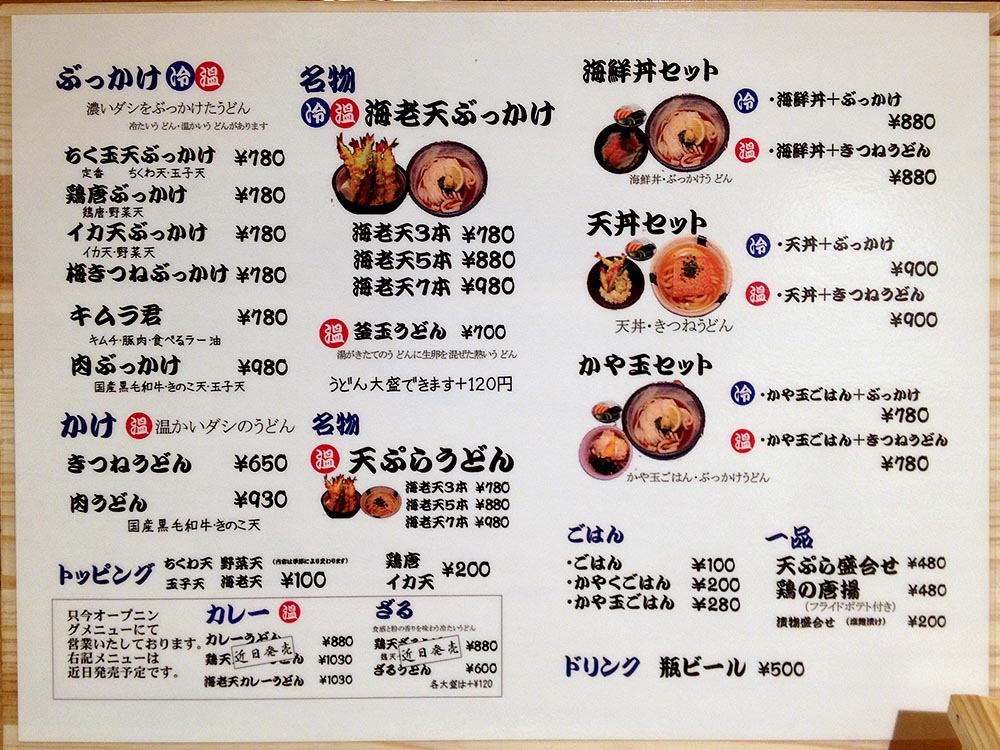 ぶっかけ 冷 温
濃いダシをぶっかけたうどん
冷たいうどん・温かいうどんがあります
ちく玉天ぶっかけ ¥780
定番 ちくわ天・玉子天
鶏唐ぶっかけ ¥780
鶏唐・野菜天
イカ天ぶっかけ ¥780
イカ天・野菜天
梅きつねぶっかけ ¥780
キムラ君 ¥780
キムチ・豚肉・食べるラー油
肉ぶっかけ ¥980
国産黒毛和牛・きのこ天・玉子天
かけ 温 温かいダシのうどん
きつねうどん ¥650
肉うどん ¥930
国産黒毛和牛・きのこ天
名物
冷 温 海老天ぶっかけ
海老天3本 ¥780
海老天5本 ¥880
海老天7本 ¥980
温 釜玉うどん ¥700
湯がきたてのうどんに生卵を混ぜた熱いうどん
うどん大盛できます+120円
名物
温 天ぷらうどん
海老天3本 ¥780
海老天5本 ¥880
海老天7本 ¥980
海鮮丼セット
冷 ・海鮮丼+ぶっかけ
¥880
温 ・海鮮丼+きつねうどん
¥880
海鮮丼・ぶっかけうどん
天丼セット
冷 ・天丼+ぶっかけ
¥900
温 ・天丼+きつねうどん
¥900
天丼・きつねうどん
かや玉セット
冷 ・かや玉ごはん+ぶっかけ
¥780
温 ・かや玉ごはん+きつねうどん
¥780
かや玉ごはん・ぶっかけうどん
トッピング
ちくわ天 野菜天 (内容は季節により変わります)
玉子天 海老天 ¥100
鶏唐
イカ天 ¥200
ごはん
・ごはん ¥100
・かやくごはん ¥200
・かや玉ごはん ¥280
一品
天ぷら盛合せ ¥480
鶏の唐揚 ¥480
(フライドポテト付き)
漬物盛合せ ¥200
ドリンク 瓶ビール ¥500
只今オープニン
グメニューにて
営業いたしております。
右記メニューは
近日発売予定です。
カレー 温
カレーうどん ¥880
鶏天 うどん ¥1030
海老天カレーうどん ¥1030
近日発売
ざる
食感と粉の香りを味わう冷たいうどん
鶏天ざる ¥880
鶏天
ざるうどん ¥600
近日発売
各大盛は+¥120